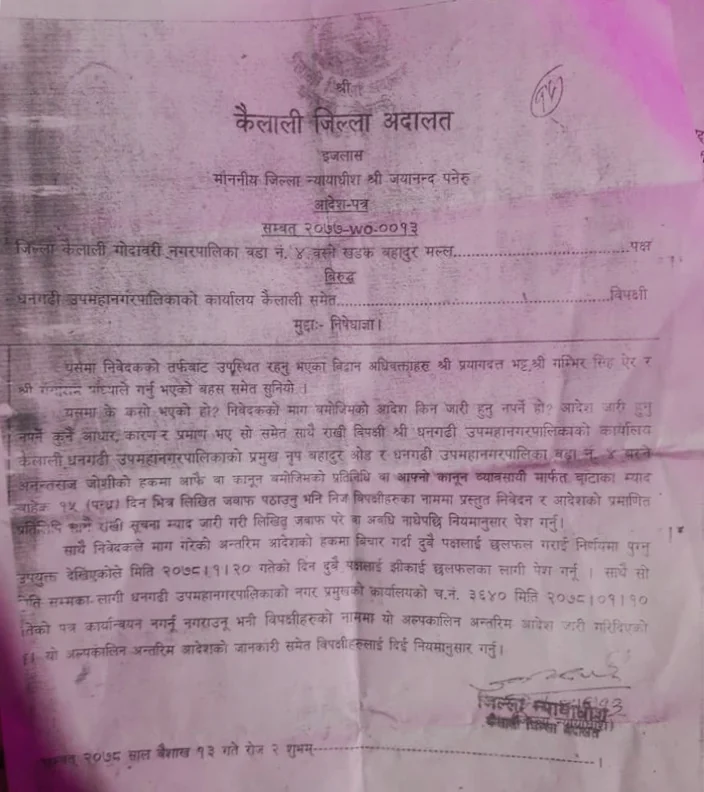 श्री
कैलाली जिल्ला अदालत
इजलास
माननीय जिल्ला न्यायाधीश श्री जयानन्द पनेरु
आदेश-पत्र
सम्बत् २०७७-WO-००१३
जिल्ला कैलाली गोदावरी नगरपालिका वडा नं. ४ बस्ने खडक बहादुर मल्ल..............................पक्ष
बिरुद्ध
धनगढी उपमहानगरपालिकाको कार्यालय कैलाली समेत..............................विपक्षी
मुद्दाः- निषेधाज्ञा।
यसमा निवेदकको तर्फबाट उपस्थित रहनु भएका बिद्वान अधिवक्ताहरु श्री प्रयागदत्त भट्ट,श्री गम्भिर सिंह ऐर र
श्री गर्नु भएको बहस समेत सुनियो ।
यसमा के कसो भएको हो? निवेदकको माग बमोजिमको आदेश किन जारी हुनु नपर्ने हो? आदेश जारी हुनु
नपर्ने कुनै आधार, कारण र प्रमाण भए सो समेत साथै राखी विपक्षी श्री धनगढी उपमहानगरपालिकाको कार्यालय
कैलाली,धनगढी उपमहानगरपालिकाको प्रमुख नृप बहादुर ओड र धनगढी उपमहानगरपालिका वडा नं. ४ बस्ने
अनन्तराज जोशीको हकमा आफै वा कानून बमोजिमको प्रतिनिधि वा आफ्नो कानून व्यावसायी मार्फत बाटाका म्याद
बाहेक १५ (पन्ध्र) दिन भित्र लिखित जवाफ पठाउनु भनि निज विपक्षीहरुका नाममा प्रस्तुत निवेदन र आदेशको प्रमाणित
प्रतिलिपि साथै राखी सूचना म्याद जारी गरी लिखित जवाफ परे वा अवधि नाघेपछि नियमानुसार पेश गर्नु।
साथै निवेदकले माग गरेको अन्तरिम आदेशको हकमा बिचार गर्दा दुवै पक्षलाई छलफल गराई निर्णयमा पुग्नु
उपयुक्त देखिएकोले मिति २०७८।१।२० गतेको दिन दुवै पक्षलाई झीकाई छलफलका लागी पेश गर्नू । साथै सो
मिति सम्मका लागी धनगढी उपमहानगरपालिकाको नगर प्रमुखको कार्यालयको च.नं. ३६४० मिति २०७८।०१।१०
को पत्र कार्यान्वयन नगर्नू नगराउनू भनी विपक्षीहरुको नाममा यो अल्पकालिन अन्तरिम आदेश जारी गरिदिएको
। यो अल्पकालिन अन्तरिम आदेशको जानकारी समेत विपक्षीहरुलाई दिई नियमानुसार गर्नु।
जिल्ला न्यायाधीश
कैलाली जिल्ला अदालत
सम्बत् २०७८ साल बैशाख १३ गते रोज २ शुभम्..............................।